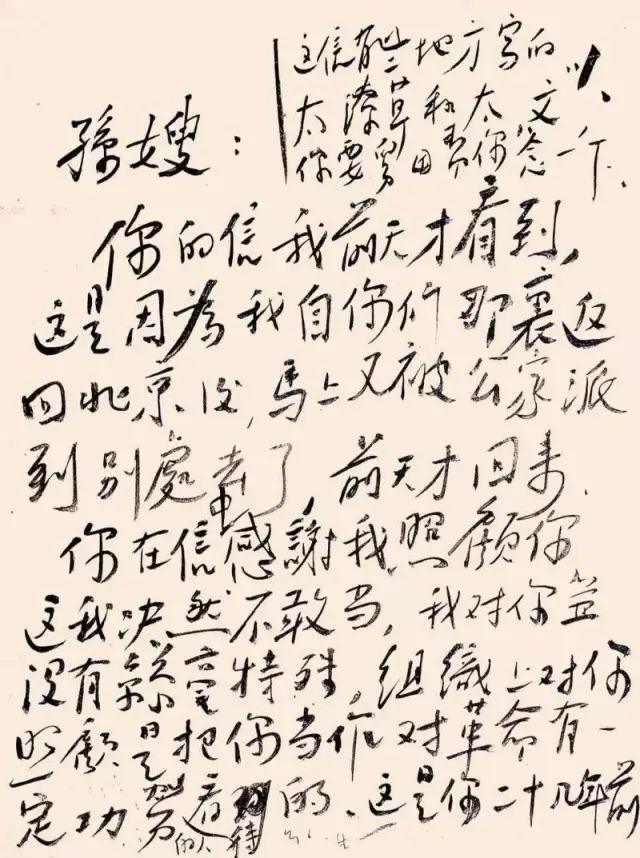 孫嫂：
這信有些地方寫的
太潦草和太文
你要舅田為你念一下、
你的信我前天才看到，
这是因為我自你们那裏返
回北京後，馬上又被公家派
到别處去了，前天才回来．
你在信中感謝我照顧你
这我决然不敢当，我对你並
没有絲毫特殊，组織上对你
照顧是把你当作对革命有一
定功劳的人看待的．这是你二十几年前